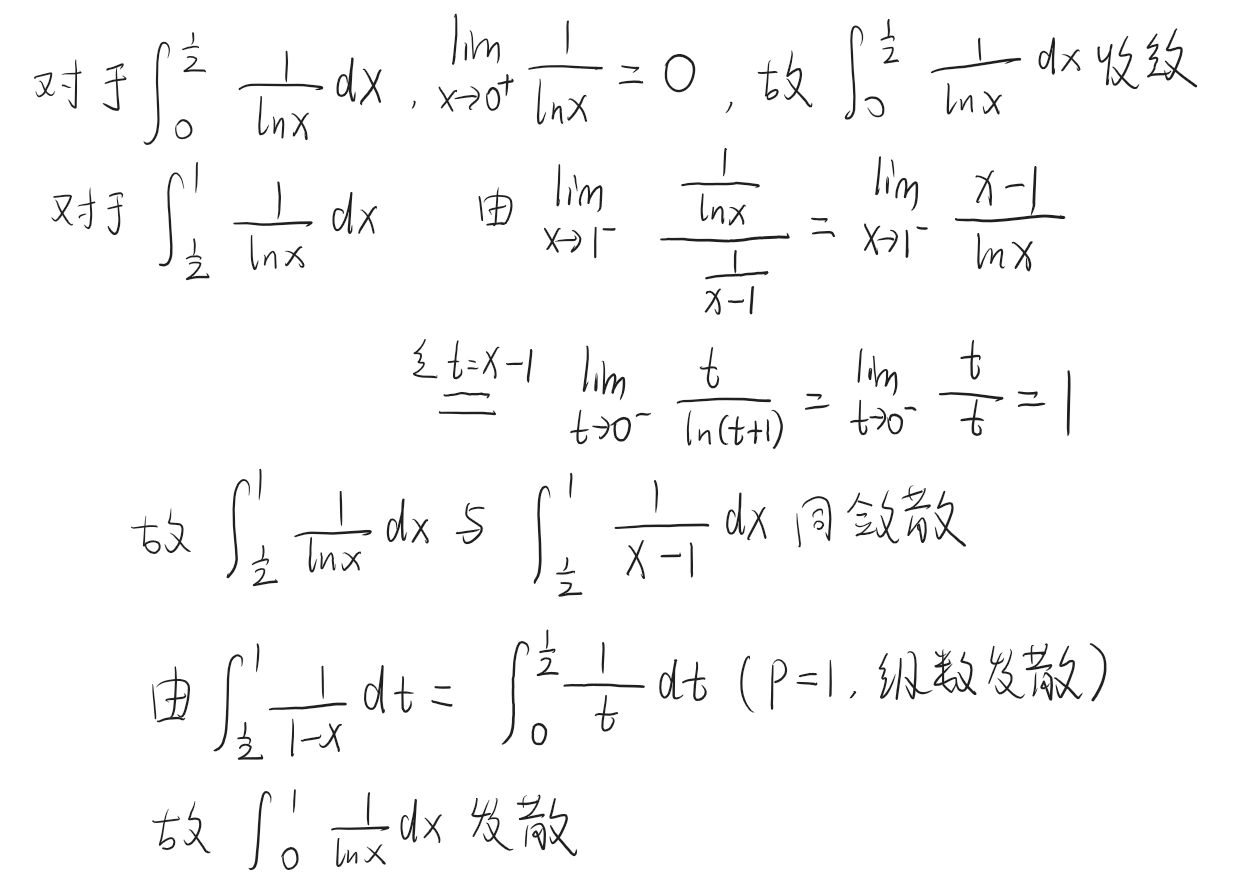 对于 $\int_0^{\frac{1}{2}} \frac{1}{\ln x} dx$ , $\lim_{x \to 0^+} \frac{1}{\ln x} = 0$ , 故 $\int_0^{\frac{1}{2}} \frac{1}{\ln x} dx$ 收敛
对于 $\int_{\frac{1}{2}}^1 \frac{1}{\ln x} dx$ 由 $\lim_{x \to 1^-} \frac{\frac{1}{\ln x}}{\frac{1}{x-1}} = \lim_{x \to 1^-} \frac{x-1}{\ln x}$
$\overset{令 t=x-1}{=} \lim_{t \to 0^-} \frac{t}{\ln(t+1)} = \lim_{t \to 0^-} \frac{t}{t} = 1$
故 $\int_{\frac{1}{2}}^1 \frac{1}{\ln x} dx$ 与 $\int_{\frac{1}{2}}^1 \frac{1}{x-1} dx$ 同敛散
由 $\int_{\frac{1}{2}}^1 \frac{1}{1-x} dt = \int_0^{\frac{1}{2}} \frac{1}{t} dt$ (P=1, 级数发散)
故 $\int_0^1 \frac{1}{\ln x} dx$ 发散